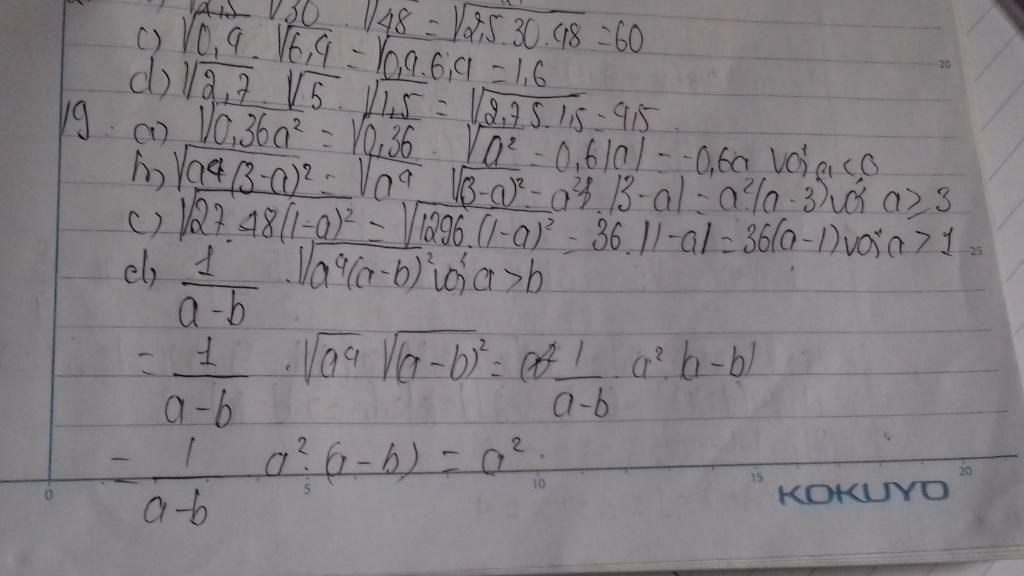 √2,5 √30 . √48 = √2,5.30.48 = 60
c) √0,4 . √6,4 = √0,4.6,4 = 1,6
d) √2,7 . √5 . √1,5 = √2,7.5.1,5 = 4,5
19. a) √0,36a² = √0,36 . √a² = 0,6|a| = -0,6a với a < 0
b) √a⁴(3-a)² = √a⁴ √(3-a)² = a² . |3-a| = a²(a-3) với a ≥ 3
c) √27.48(1-a)² = √1296.(1-a)² = 36.|1-a| = 36(a-1) với a > 1
d) 1/(a-b) . √a⁴(a-b)² với a > b
= 1/(a-b) . √a⁴ √(a-b)² = 1/(a-b) . a² |a-b|
= 1/(a-b) a².(a-b) = a².
KOKUYO
0 5 10 15 20
20
25